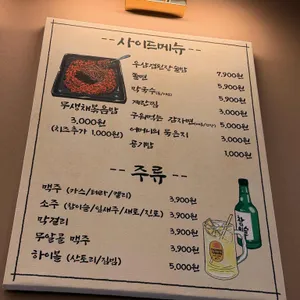 -- 사이드메뉴 --
우삼겹된장술밥 7,900원
쫄면 5,900원
막국수 5,900원
계란찜 3,000원
구워먹는 감자전 5,000원
어머니의 묵은지 3,000원
공기밥 1,000원
무생채볶음밥
3,000원
(치즈추가 1,000원)
-- 주류 --
맥주 (카스/테라/켈리) 3,900원
소주 (참이슬/진로) 3,900원
막걸리 3,900원
무알콜 맥주 3,900원
하이볼 (산토리/짐빔) 5,000원